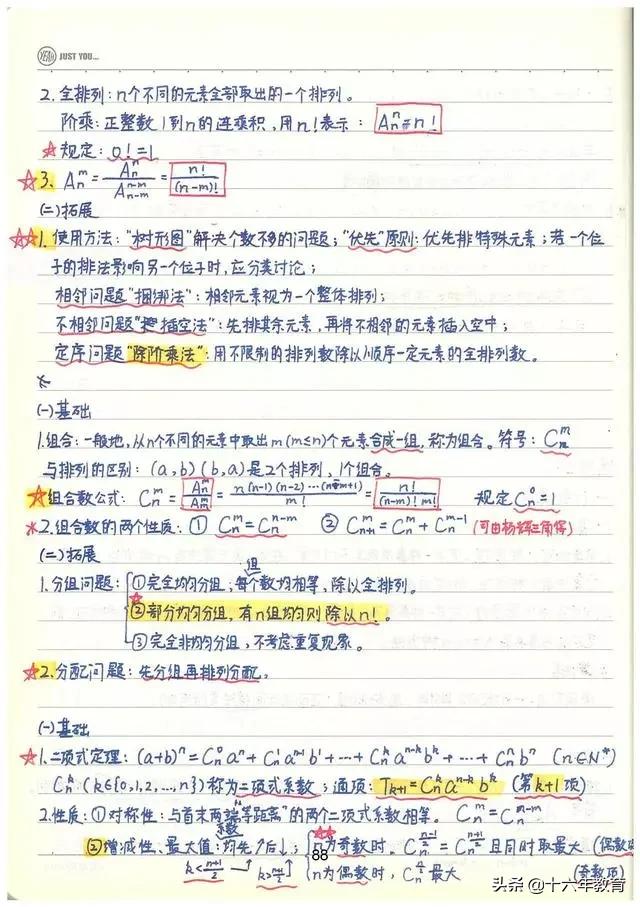 YEAH JUST YOU...
2. 全排列：n个不同的元素全部取出的一个排列。
阶乘：正整数1到n的连乘积，用n!表示：Aₙⁿ=n!
☆规定：0!=1
☆3. Aₙᵐ = Aₙⁿ/Aₙ₋ₘⁿ⁻ᵐ = n!/(n-m)!
(二)拓展
☆☆1. 使用方法："树形图"解决个数不多的问题；"优先"原则：优先排特殊元素；若一个位
子的排法影响另一个位子时，应分类讨论；
相邻问题"捆绑法"：相邻元素视为一个整体排列；
不相邻问题"插空法"：先排其余元素，再将不相邻的元素插入空中；
定序问题"除阶乘法"：用不限制的排列数除以顺序一定元素的全排列数。
(一)基础
1.组合：一般地，从n个不同的元素中取出m(m≤n)个元素合成一组，称为组合。符号：Cₙᵐ
与排列的区别：(a,b)(b,a)是2个排列，1个组合。
☆组合数公式：Cₙᵐ = Aₙᵐ/Aₘᵐ = n(n-1)(n-2)…(n-m+1)/m! = n!/(n-m)!m! 规定Cₙ⁰=1
*2.组合数的两个性质：① Cₙᵐ=Cₙⁿ⁻ᵐ ② Cₙ₊₁ᵐ=Cₙᵐ+Cₙᵐ⁻¹ (可由杨辉三角得)
(二)拓展
1.分组问题：①完全均匀分组，每组个数均相等，除以全排列。
☆②部分均匀分组，有n组均匀则除以n!。
③完全非均匀分组，不考虑重复现象。
☆2.分配问题：先分组再排列分配。
(一)基础
☆1.二项式定理：(a+b)ⁿ=Cₙ⁰aⁿ+Cₙ¹aⁿ⁻¹b¹+…+Cₙᵏaⁿ⁻ᵏbᵏ+…+Cₙⁿbⁿ (n∈N*)
Cₙᵏ(k∈{0,1,2,…,n})称为二项式系数；通项：Tₖ₊₁=Cₙᵏaⁿ⁻ᵏbᵏ (第k+1项)
2.性质：①对称性：与首末两端"等距离"的两个二项式系数相等。Cₙᵐ=Cₙⁿ⁻ᵐ
②增减性、最大值：系数均先↑后↓；☆☆n为奇数时，Cₙ^((n-1)/2)=Cₙ^((n+1)/2)且同时取最大(偶数项
k<(n+1)/2 k>(n+1)/2 n为偶数时，Cₙ^(n/2)最大 (奇数项)
88
头条@十六年教育